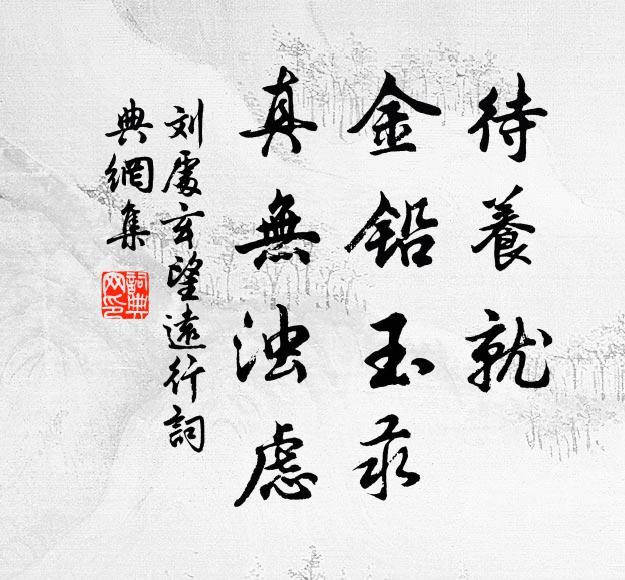 待養就
金鉛玉汞
真無浊慮
刘處玄望遠行詞
典網集
詞典網印